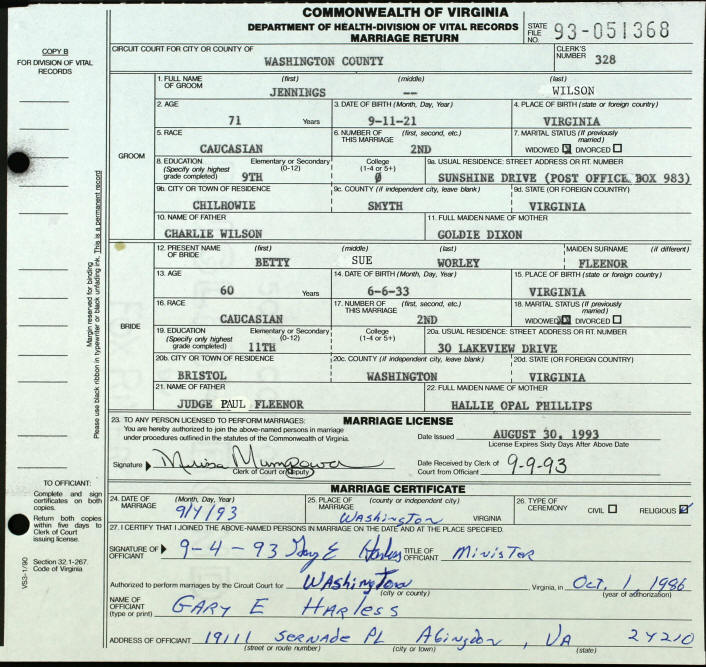 COMMONWEALTH OF VIRGINIA
DEPARTMENT OF HEALTH-DIVISION OF VITAL RECORDS
MARRIAGE RETURN
STATE FILE NO. 93-051368
COPY B
FOR DIVISION OF VITAL RECORDS
CIRCUIT COURT FOR CITY OR COUNTY OF
WASHINGTON COUNTY
CLERK'S NUMBER 328
GROOM
1. FULL NAME OF GROOM (first) (middle) (last)
JENNINGS -- WILSON
2. AGE 3. DATE OF BIRTH (Month, Day, Year) 4. PLACE OF BIRTH (state or foreign country)
71 Years 9-11-21 VIRGINIA
5. RACE 6. NUMBER OF THIS MARRIAGE (first, second, etc.) 7. MARITAL STATUS (If previously married)
CAUCASIAN 2ND WIDOWED X DIVORCED
8. EDUCATION (Specify only highest grade completed) Elementary or Secondary (0-12) College (1-4 or 5+) 9a. USUAL RESIDENCE: STREET ADDRESS OR RT. NUMBER
9TH 0 SUNSHINE DRIVE (POST OFFICE BOX 983)
9b. CITY OR TOWN OF RESIDENCE 9c. COUNTY (If independent city, leave blank) 9d. STATE (OR FOREIGN COUNTRY)
CHILHOWIE SMYTH VIRGINIA
10. NAME OF FATHER 11. FULL MAIDEN NAME OF MOTHER
CHARLIE WILSON GOLDIE DIXON
BRIDE
12. PRESENT NAME OF BRIDE (first) (middle) (last) MAIDEN SURNAME (if different)
BETTY SUE WORLEY FLEENOR
13. AGE 14. DATE OF BIRTH (Month, Day, Year) 15. PLACE OF BIRTH (state or foreign country)
60 Years 6-6-33 VIRGINIA
16. RACE 17. NUMBER OF THIS MARRIAGE (first, second, etc.) 18. MARITAL STATUS (If previously married)
CAUCASIAN 2ND WIDOWED X DIVORCED
19. EDUCATION (Specify only highest grade completed) Elementary or Secondary (0-12) College (1-4 or 5+) 20a. USUAL RESIDENCE: STREET ADDRESS OR RT. NUMBER
11TH 30 LAKEVIEW DRIVE
20b. CITY OR TOWN OF RESIDENCE 20c. COUNTY (If independent city, leave blank) 20d. STATE (OR FOREIGN COUNTRY)
BRISTOL WASHINGTON VIRGINIA
21. NAME OF FATHER 22. FULL MAIDEN NAME OF MOTHER
JUDGE PAUL FLEENOR HALLIE OPAL PHILLIPS
23. TO ANY PERSON LICENSED TO PERFORM MARRIAGES: MARRIAGE LICENSE
You are hereby authorized to join the above-named persons in marriage
under procedures outlined in the statutes of the Commonwealth of Virginia.
Date Issued AUGUST 30, 1993
License Expires Sixty Days After Above Date
Signature
Clerk of Court or Deputy
Date Received by Clerk of Court from Officiant 9-9-93
MARRIAGE CERTIFICATE
24. DATE OF MARRIAGE (Month, Day, Year) 25. PLACE OF MARRIAGE (county or independent city) 26. TYPE OF CEREMONY CIVIL RELIGIOUS
9/4/93 Washington VIRGINIA
27. I CERTIFY THAT I JOINED THE ABOVE-NAMED PERSONS IN MARRIAGE ON THE DATE AND AT THE PLACE SPECIFIED.
SIGNATURE OF OFFICIANT 9-4-93 Gary E Harless TITLE OF OFFICIANT Minister
Authorized to perform marriages by the Circuit Court for Washington Virginia, in Oct. 1 1986
(city or county) (year of authorization)
NAME OF OFFICIANT (type or print) GARY E Harless
ADDRESS OF OFFICIANT 19111 sernade PL Abingdon, VA 24210
(street or route number) (city or town) (state)
Margin reserved for binding
Please use black ribbon in typewriter or black unfading ink. This is a permanent record
TO OFFICIANT:
Complete and sign certificates on both copies.
Return both copies within five days to Clerk of Court issuing license.
Section 32.1-267. Code of Virginia
VS3-1/90